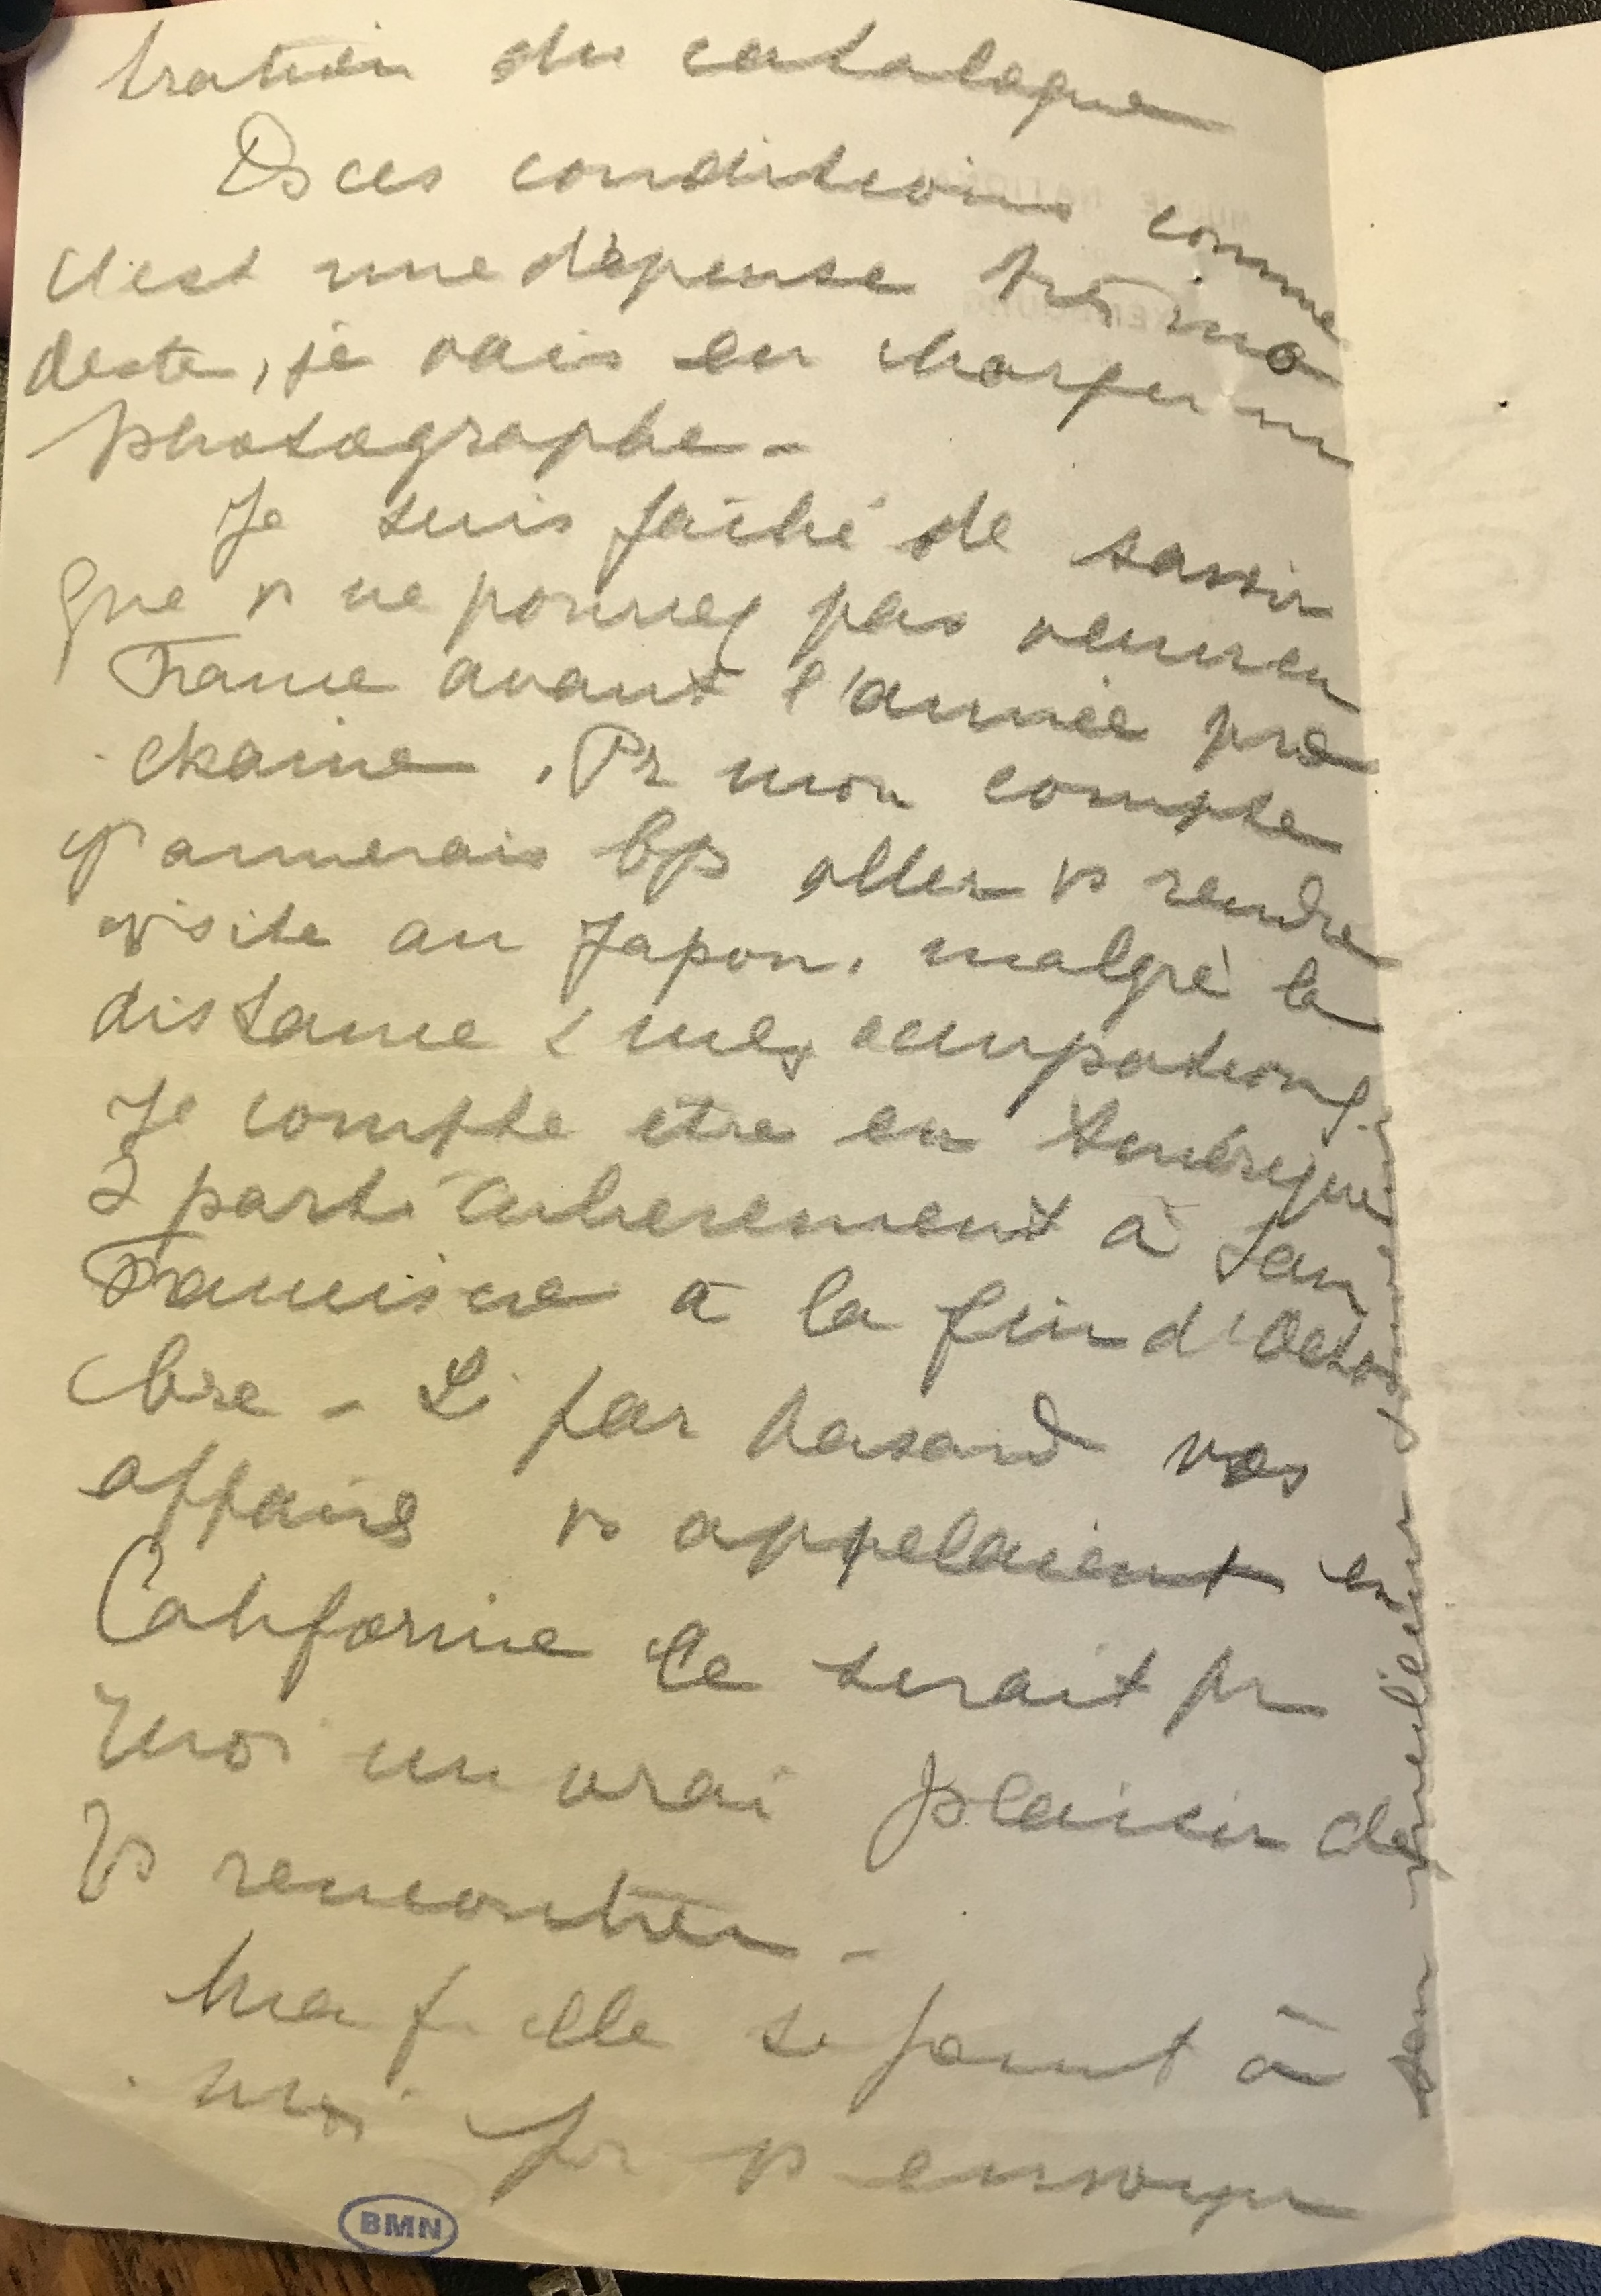 tration du catalogue
Ds ces conditions comme
c'est une dépense très mo
deste, je vais en charger un
photographe -
Je suis fâché de savoir
que vs ne pourrez pas venir en
France avant l'année pro
chaine. Pr mon compte
j'aimerais bp aller vs rendre
visite au Japon, malgré la
distance & mes occupations.
Je compte être en Amérique
& particulièrement à San
Francisco à la fin d'Octo
bre - Si par hasard vos
affaires vs appelaient en
Californie ce serait pr
moi un vrai plaisir de
vs rencontrer -
Ma fille se joint à
moi pr vs envoyer
son meilleur
BMN